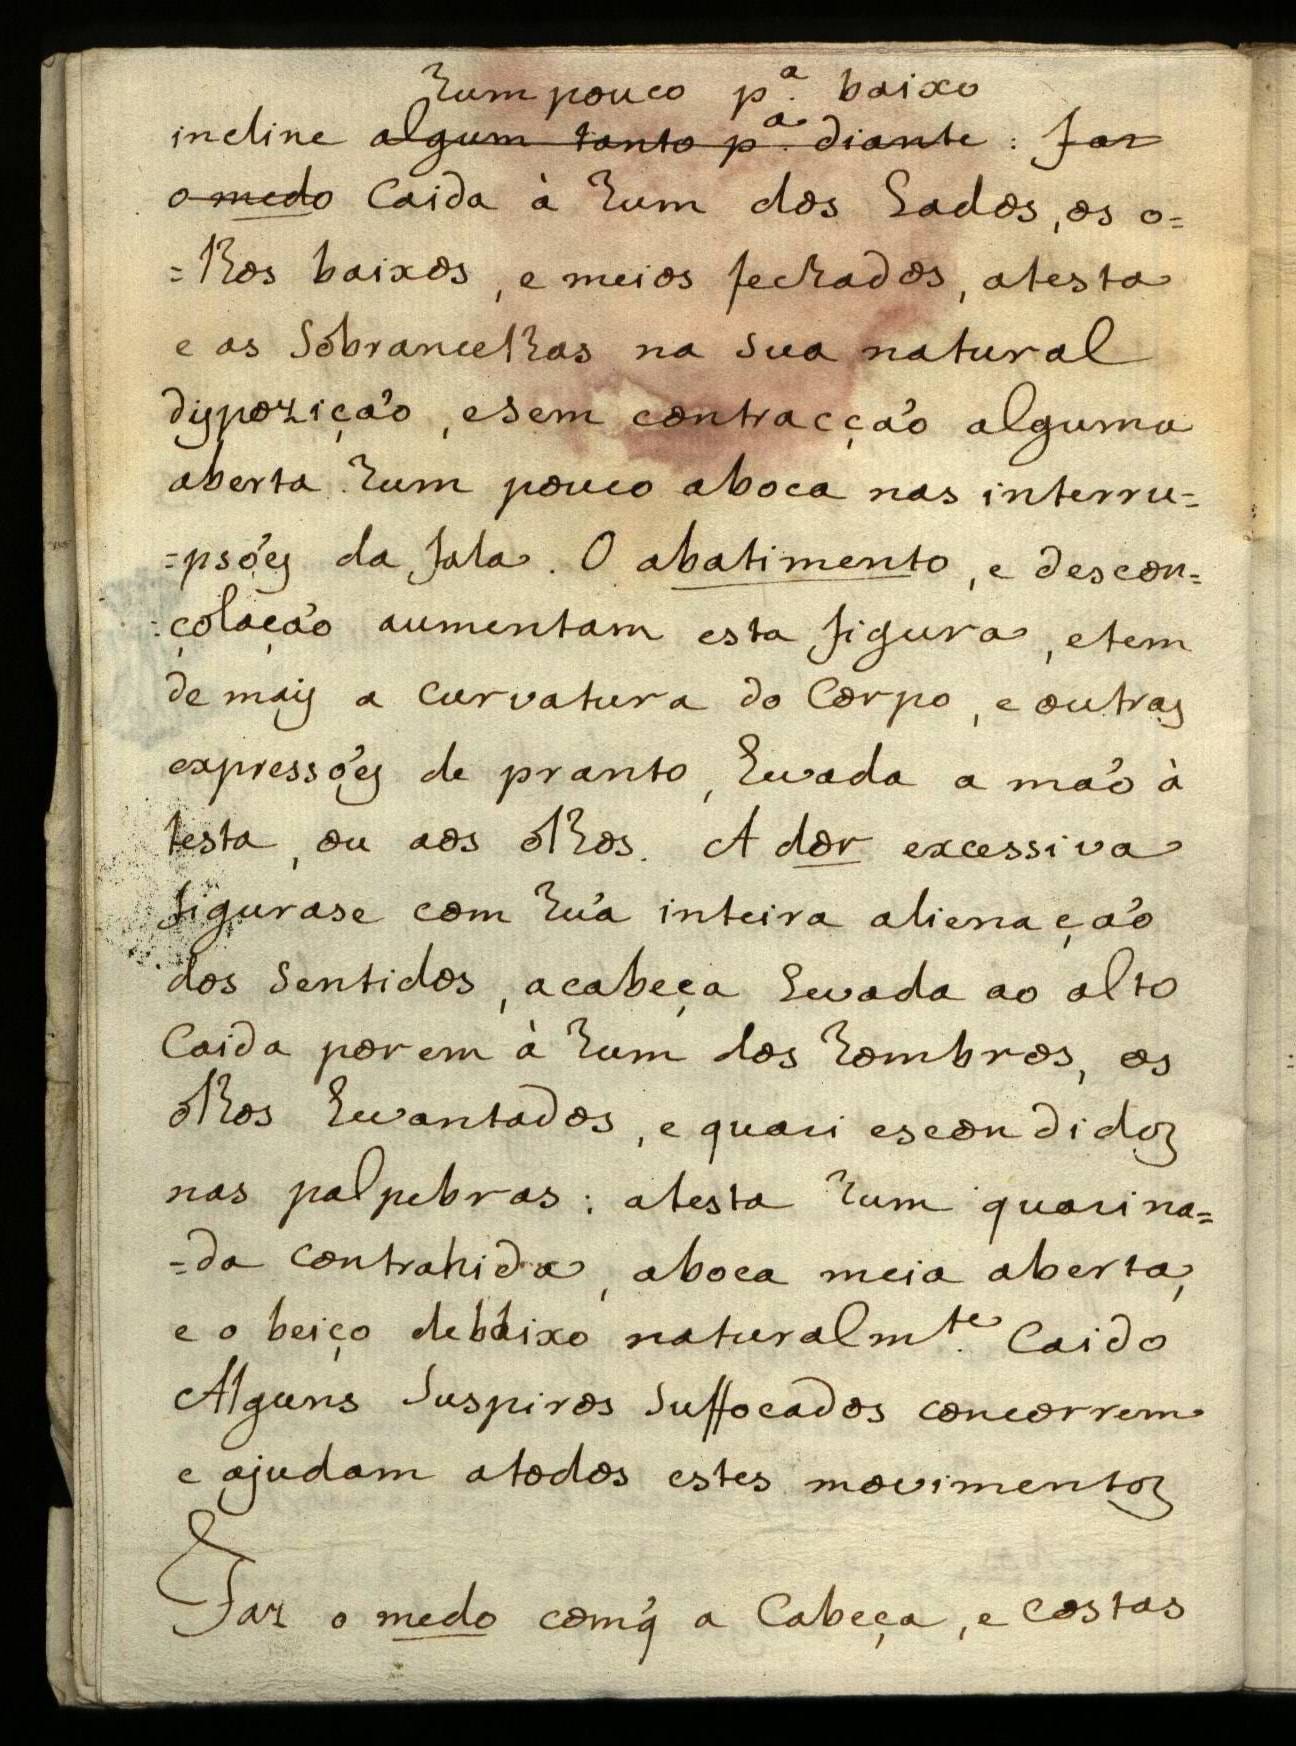 hum pouco p.ª baixo
incline algum tanto p.ª diante : faz
o medo Caida à hum dos Lados, os o=
=lhos baixos, e meios fechados, atesta
e as Sobrancelhas na sua natural
dispozição, esem contracção alguma
aberta hum pouco aboca nas interru=
=psões da fala. O abatimento, e descon=
:çolação aumentam esta figura, etem
de mais a curvatura do Corpo, e outras
expressões de pranto, Levada a mão à
testa, ou aos olhos. A dor excessiva
figurase com hũa inteira alienação
dos Sentidos, acabeça Levada ao alto
Caida porem à hum dos hombros, os
olhos Levantados, e quasi escondidos
nas palpebras : atesta hum quasi na=
=da contrahida, aboca meia aberta,
e o beiço debaixo naturalm.te Caido
Alguns Suspiros Suffocados concorrem
e ajudam atodos estes movimentos
Faz o medo comq̃ a Cabeça, e costas